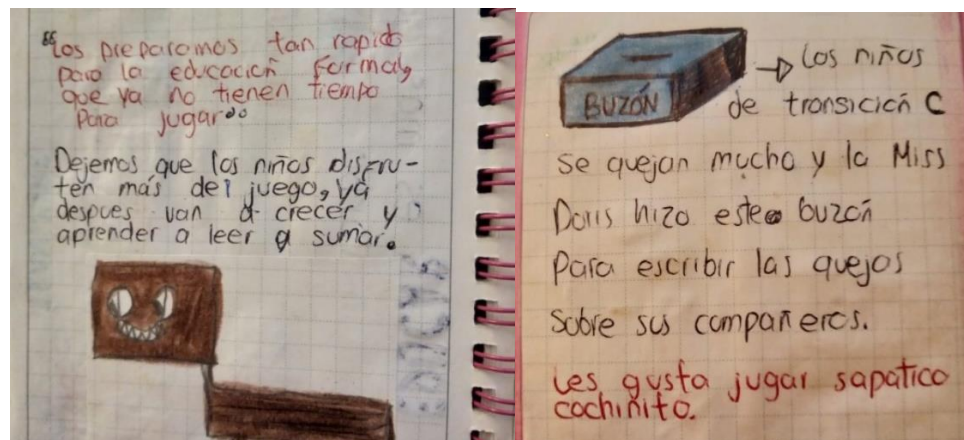 “Los preparamos tan rapido
para la educación formal,
que ya no tienen tiempo
para jugar”
Dejemos que los niños disfru-
ten más del juego, ya
despues van a crecer y
aprender a leer a sumar.
BUZÓN
→ Los niños
de transición C
se quejan mucho y la Miss
Doris hizo este buzón
Para escribir las quejas
sobre sus compañeros.
Les gusta jugar sapatico
cochinito.